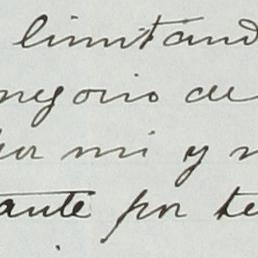 limitand
negocio de
por mi y n
ante por te